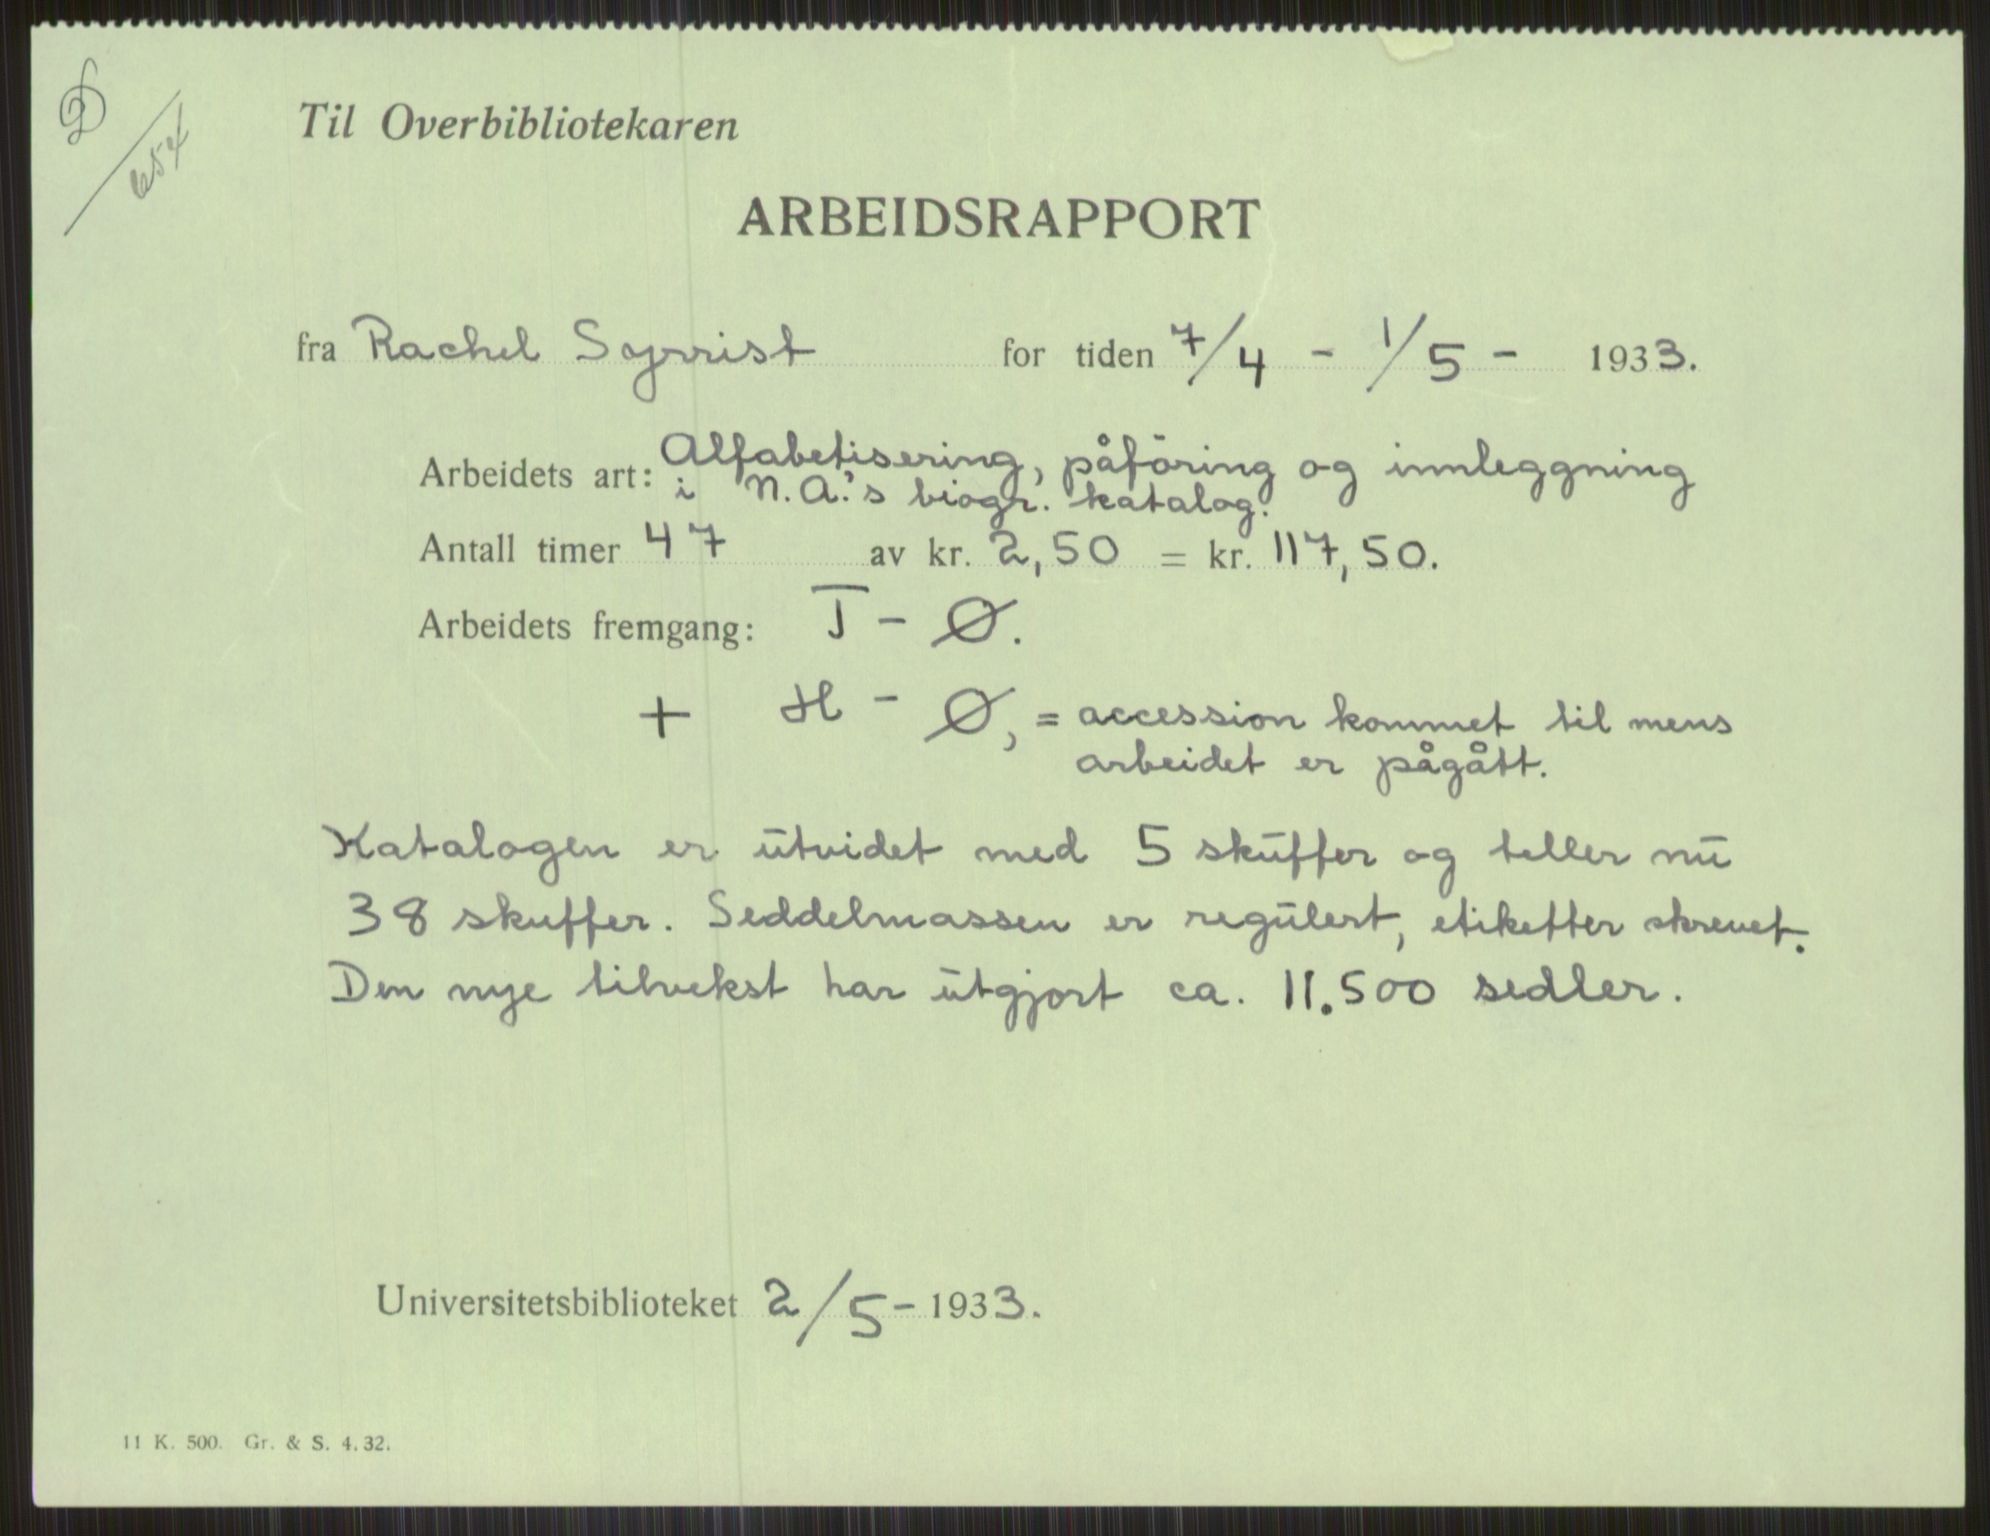 Til Overbibliotekaren
ARBEIDSRAPPORT
fra Rachel Syrrist for tiden 7/4 - 1/5 - 1933.
Arbeidets art: Alfabetisering, påföring og innleggning
i N.A.'s biogr. katalog.
Antall timer 47 av kr. 2,50 = kr. 117,50.
Arbeidets fremgang: J - Ø.
+ H - Ø, = accession kommet til mens
arbeidet er pågått.
Katalogen er utvidet med 5 skuffer og teller nu
38 skuffer. Seddelmassen er regulert, etiketter skrevet.
Den nye tilvekst har utgjort ca. 11.500 sedler.
Universitetsbiblioteket 2/5 - 1933.
11 K. 500. Gr. & S. 4.32.